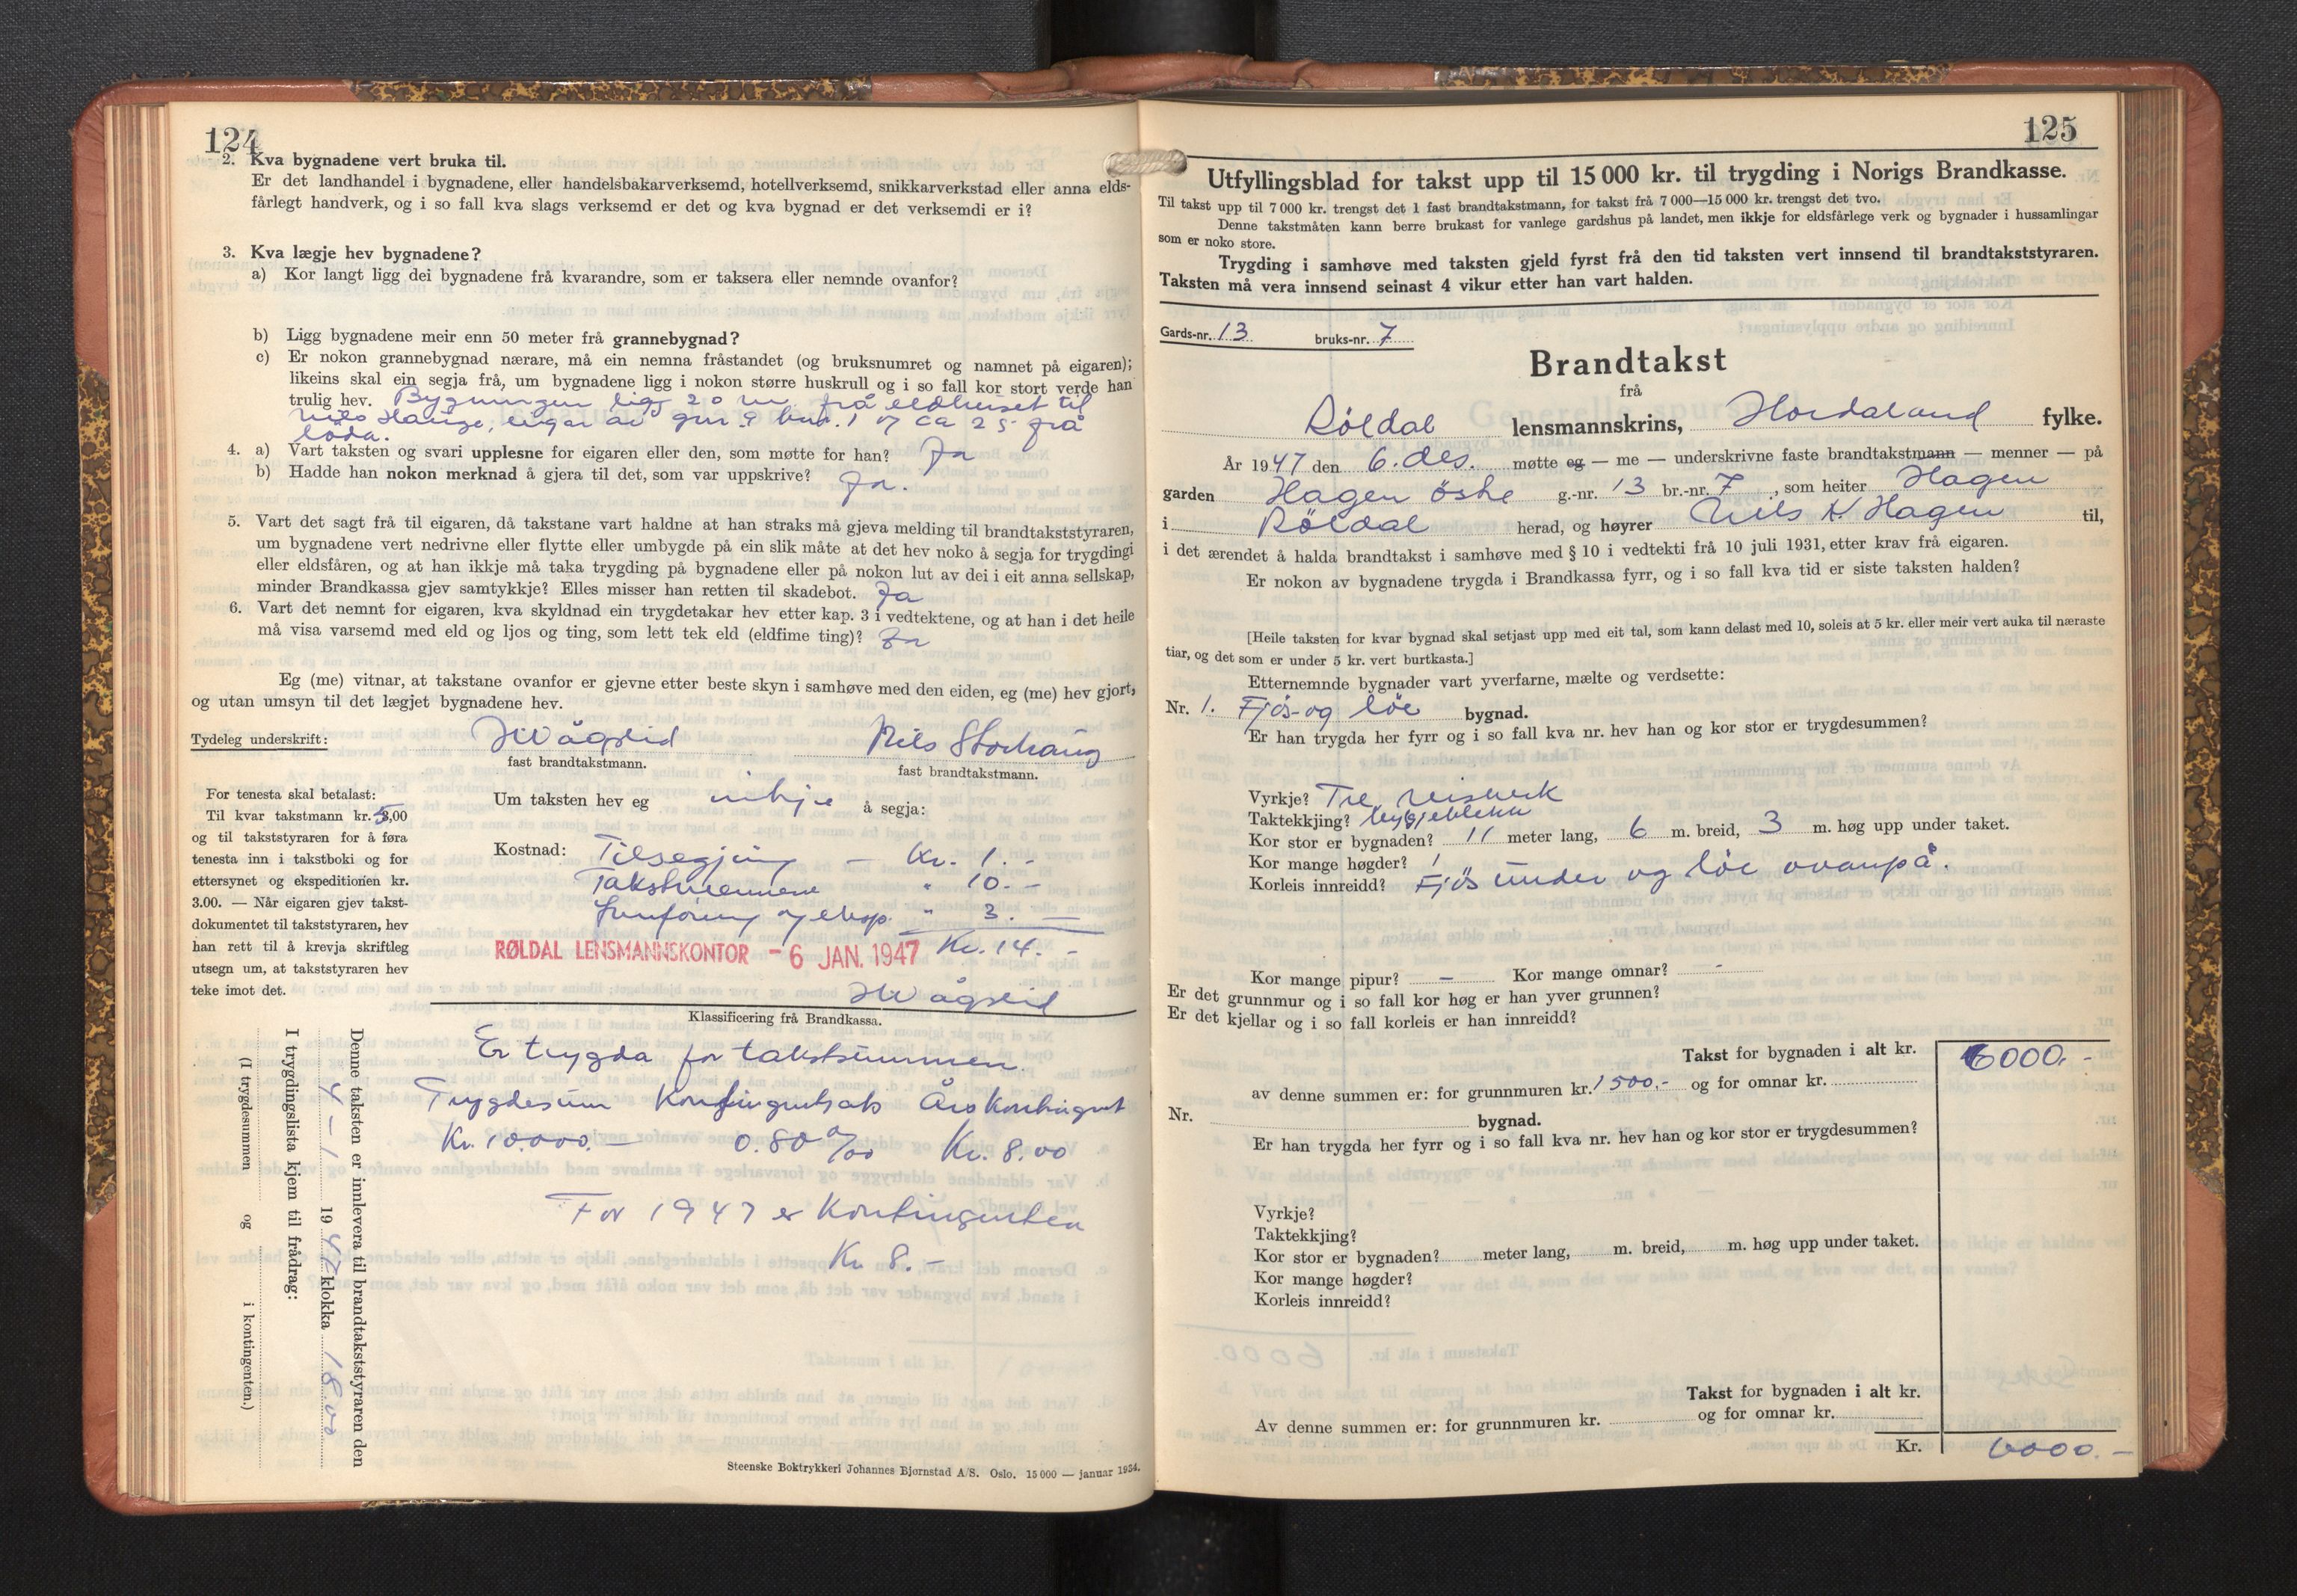 124
2. Kva bygnadene vert bruka til.
Er det landhandel i bygnadene, eller handelsbakarverksemd, hotellverksemd, snikkarverkstad eller anna elds-
fårlegt handverk, og i so fall kva slags verksemd er det og kva bygnad er det verksemdi er i?
3. Kva lægje hev bygnadene?
a) Kor langt ligg dei bygnadene frå kvarandre, som er taksera eller nemnde ovanfor?
b) Ligg bygnadene meir enn 50 meter frå grannebygnad?
c) Er nokon grannebygnad nærare, må ein nemna fråstandet (og bruksnumret og namnet på eigaren);
likeins skal ein segja frå, um bygnadene ligg i nokon større huskrull og i so fall kor stort verde han
trulig hev. Bygningen ligg 20 m. frå eldhuset til
Nils Hauge, eigar av gnr. 9 bnr. 1 og ca 25 frå
löda.
4. a) Vart taksten og svari upplesne for eigaren eller den, som møtte for han? Ja
b) Hadde han nokon merknad å gjera til det, som var uppskrive? Ja.
5. Vart det sagt frå til eigaren, då takstane vart haldne at han straks må gjeva melding til brandtakststyraren,
um bygnadene vert nedrivne eller flytte eller umbygde på ein slik måte at det hev noko å segja for trygdingi
eller eldsfåren, og at han ikkje må taka trygding på bygnadene eller på nokon lut av dei i eit anna sellskap,
minder Brandkassa gjev samtykkje? Elles misser han retten til skadebot. Ja
6. Vart det nemnt for eigaren, kva skyldnad ein trygdetakar hev etter kap. 3 i vedtektene, og at han i det heile
må visa varsemd med eld og ljos og ting, som lett tek eld (eldfime ting)? Ja
Eg (me) vitnar, at takstane ovanfor er gjevne etter beste skyn i samhøve med den eiden, eg (me) hev gjort,
og utan umsyn til det lægjet bygnadene hev.
Tydeleg underskrift: JWågslid Nils Storhaug
fast brandtakstmann. fast brandtakstmann.
For tenesta skal betalast:
Til kvar takstmann kr. 5,00
og til takststyraren for å føra
tenesta inn i takstboki og for
ettersynet og ekspeditionen kr.
3.00. — Når eigaren gjev takst-
dokumentet til takststyraren, hev
han rett til å krevja skriftleg
utsegn um, at takststyraren hev
teke imot det.
Um taksten hev eg inkje å segja:
Kostnad: Tilsegjing — Kr. 1.-
Takstmennene " 10.-
Innföring og eksp. " 3.—
RØLDAL LENSMANNSKONTOR - 6 JAN. 1947 Kr. 14.-
JWågslid
Klassificering frå Brandkassa.
Er trygda for takstsummen.
Trygdesum Kontingentsats Årskontingent
Kr. 10.000.— 0.80 o/oo Kr. 8.00
For 1947 er Kontingenten
Kr 8.-
Denne taksten er innlevera til brandtakststyraren den
4 - 1 1947 klokka 18.00
I trygdingslista kjem til frådrag:
(I trygdesummen og i kontingenten.)
Steenske Boktrykkeri Johannes Bjørnstad A/S. Oslo. 15 000 — januar 1934.
125
Utfyllingsblad for takst upp til 15 000 kr. til trygding i Norigs Brandkasse.
Til takst upp til 7 000 kr. trengst det 1 fast brandtakstmann, for takst frå 7 000—15 000 kr. trengst det tvo.
Denne takstmåten kann berre brukast for vanlege gardshus på landet, men ikkje for eldsfårlege verk og bygnader i hussamlingar
som er noko store.
Trygding i samhøve med taksten gjeld fyrst frå den tid taksten vert innsend til brandtakststyraren.
Taksten må vera innsend seinast 4 vikur etter han vart halden.
Gards-nr. 13 bruks-nr. 7
Brandtakst
frå
Röldal lensmannskrins, Hordaland fylke.
År 1947 den 6. des. møtte eg — me — underskrivne faste brandtakstmann — menner — på
garden Hagen östre g.-nr. 13 br.-nr. 7, som heiter Hagen
i Röldal herad, og høyrer Nils K. Hagen til,
i det ærendet å halda brandtakst i samhøve med § 10 i vedtekti frå 10 juli 1931, etter krav frå eigaren.
Er nokon av bygnadene trygda i Brandkassa fyrr, og i so fall kva tid er siste taksten halden?
[Heile taksten for kvar bygnad skal setjast upp med eit tal, som kann delast med 10, soleis at 5 kr. eller meir vert auka til næraste
tiar, og det som er under 5 kr. vert burtkasta.]
Etternemnde bygnader vart yverfarne, mælte og verdsette:
Nr. 1. Fjös-og löe bygnad.
Er han trygda her fyrr og i so fall kva nr. hev han og kor stor er trygdesummen?
Vyrkje? Tre, reisverk
Taktekkjing? bylgjeblekk
Kor stor er bygnaden? 11 meter lang, 6 m. breid, 3 m. høg upp under taket.
Kor mange høgder? 1
Korleis innreidd? Fjös under og löe ovanpå.
Kor mange pipur? - Kor mange omnar? -
Er det grunnmur og i so fall kor høg er han yver grunnen?
Er det kjellar og i so fall korleis er han innreidd?
Takst for bygnaden i alt kr. 6000.-
av denne summen er: for grunnmuren kr. 1500.- og for omnar kr.
Nr. bygnad.
Er han trygda her fyrr og i so fall kva nr. hev han og kor stor er trygdesummen?
Vyrkje?
Taktekkjing?
Kor stor er bygnaden? meter lang, m. breid, m. høg upp under taket.
Kor mange høgder?
Korleis innreidd?
Takst for bygnaden i alt kr.
Av denne summen er: for grunnmuren kr. og for omnar kr.
Kr. 6000.-